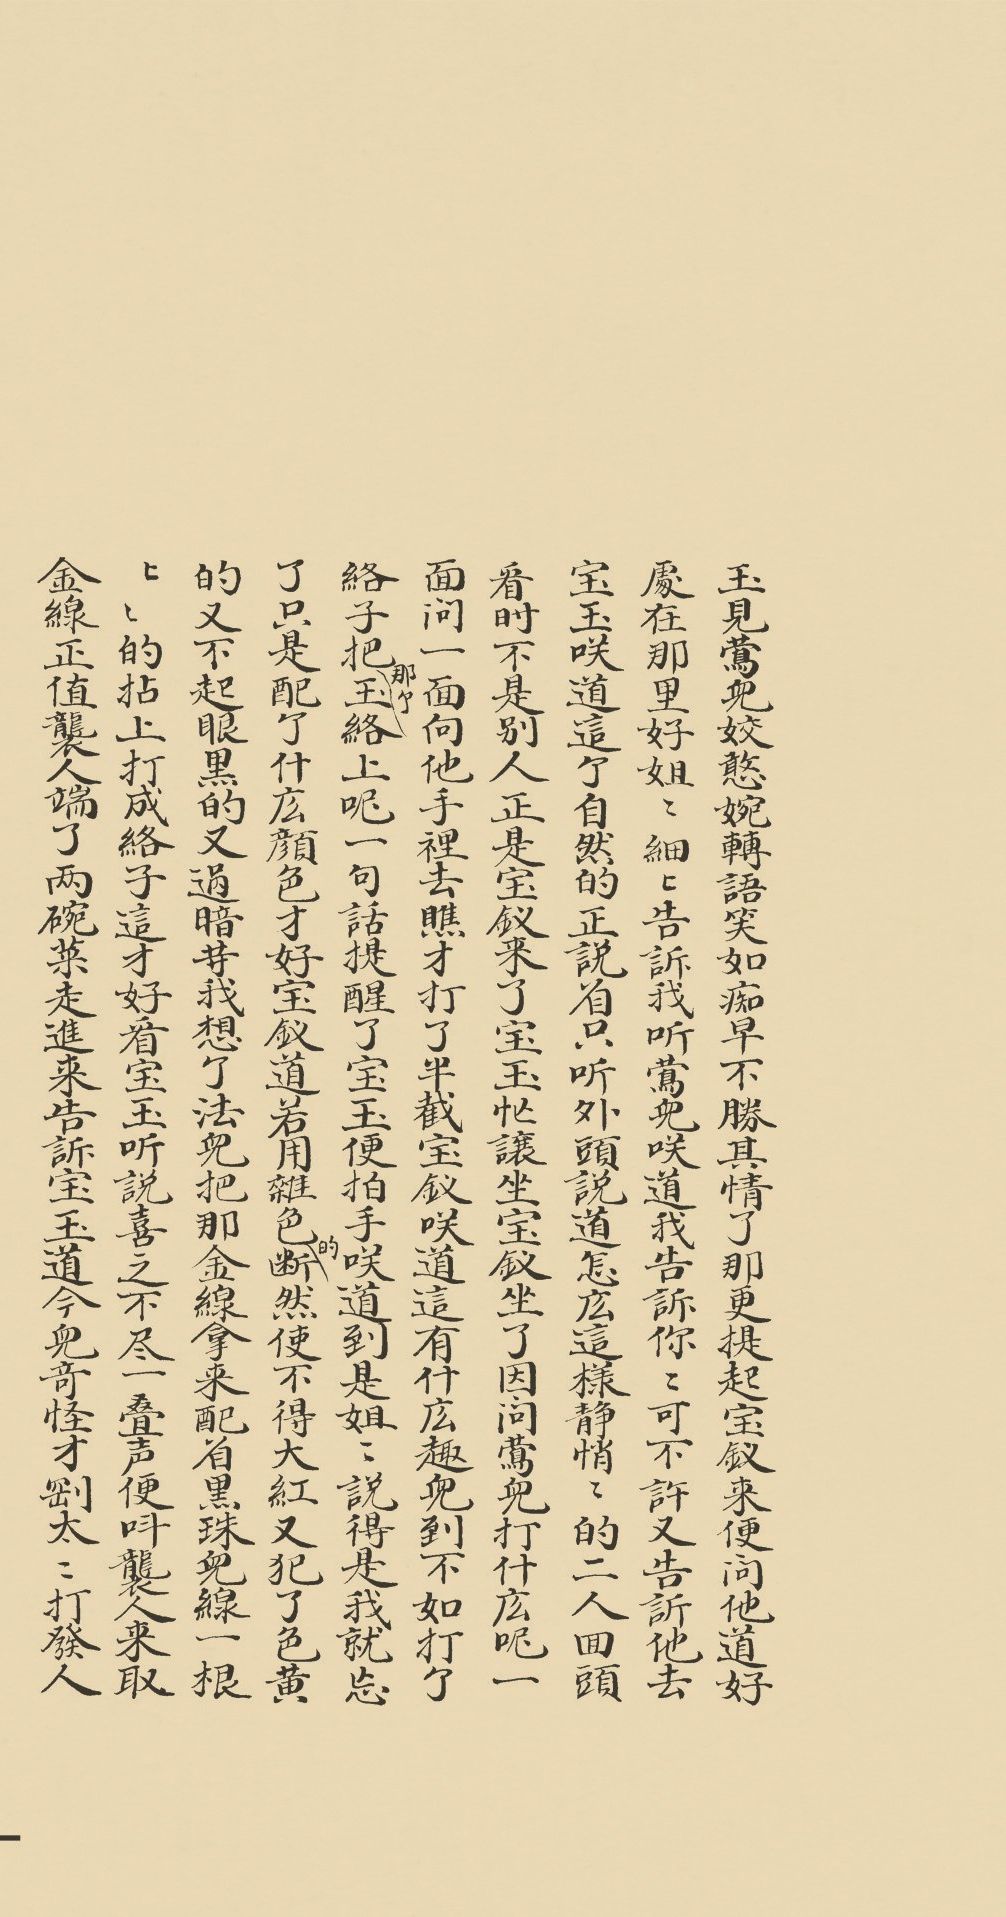 玉見鶯兒姣憨婉轉語笑如痴早不勝其情了那更提起宝釵来便问他道好
處在那里好姐〻細〻告訴我听鶯兒咲道我告訴你〻可不許又告訴他去
宝玉咲道這个自然的正説着只听外頭説道怎広這樣静悄〻的二人回頭
看时不是别人正是宝釵来了宝玉忙讓坐宝釵坐了因问鶯兒打什広呢一
面问一面向他手裡去瞧才打了半截宝釵咲道這有什広趣兒到不如打个
絡子把那个玉絡上呢一句話提醒了宝玉便拍手咲道到是姐〻説得是我就忘
了只是配个什広顔色才好宝釵道若用雜色的断然使不得大紅又犯了色黄
的又不起眼黒的又過暗等我想个法兒把那金線拿来配着黒珠兒線一根
〻〻的拈上打成絡子這才好看宝玉听説喜之不尽一叠声便呌襲人来取
金線正值襲人端了两碗菜走進来告訴宝玉道今兒奇怪才剛太〻打發人